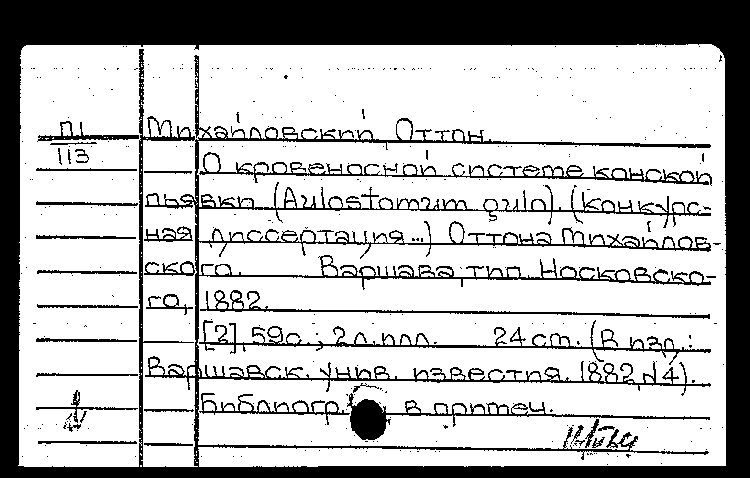 П1 Михайловский, Оттон.
113 О кровеносной системе конской
пьявки (Aulostomum gulo). (Конкурс-
ная диссертация...) Оттона Михайлов-
ского. Варшава, тип. Носковско-
го, 1882.
[2], 59с.; 2л. илл. 24 ст. (В изд.:
Варшавск. унив. известия. 1882, №4).
Библиогр. в притеч.